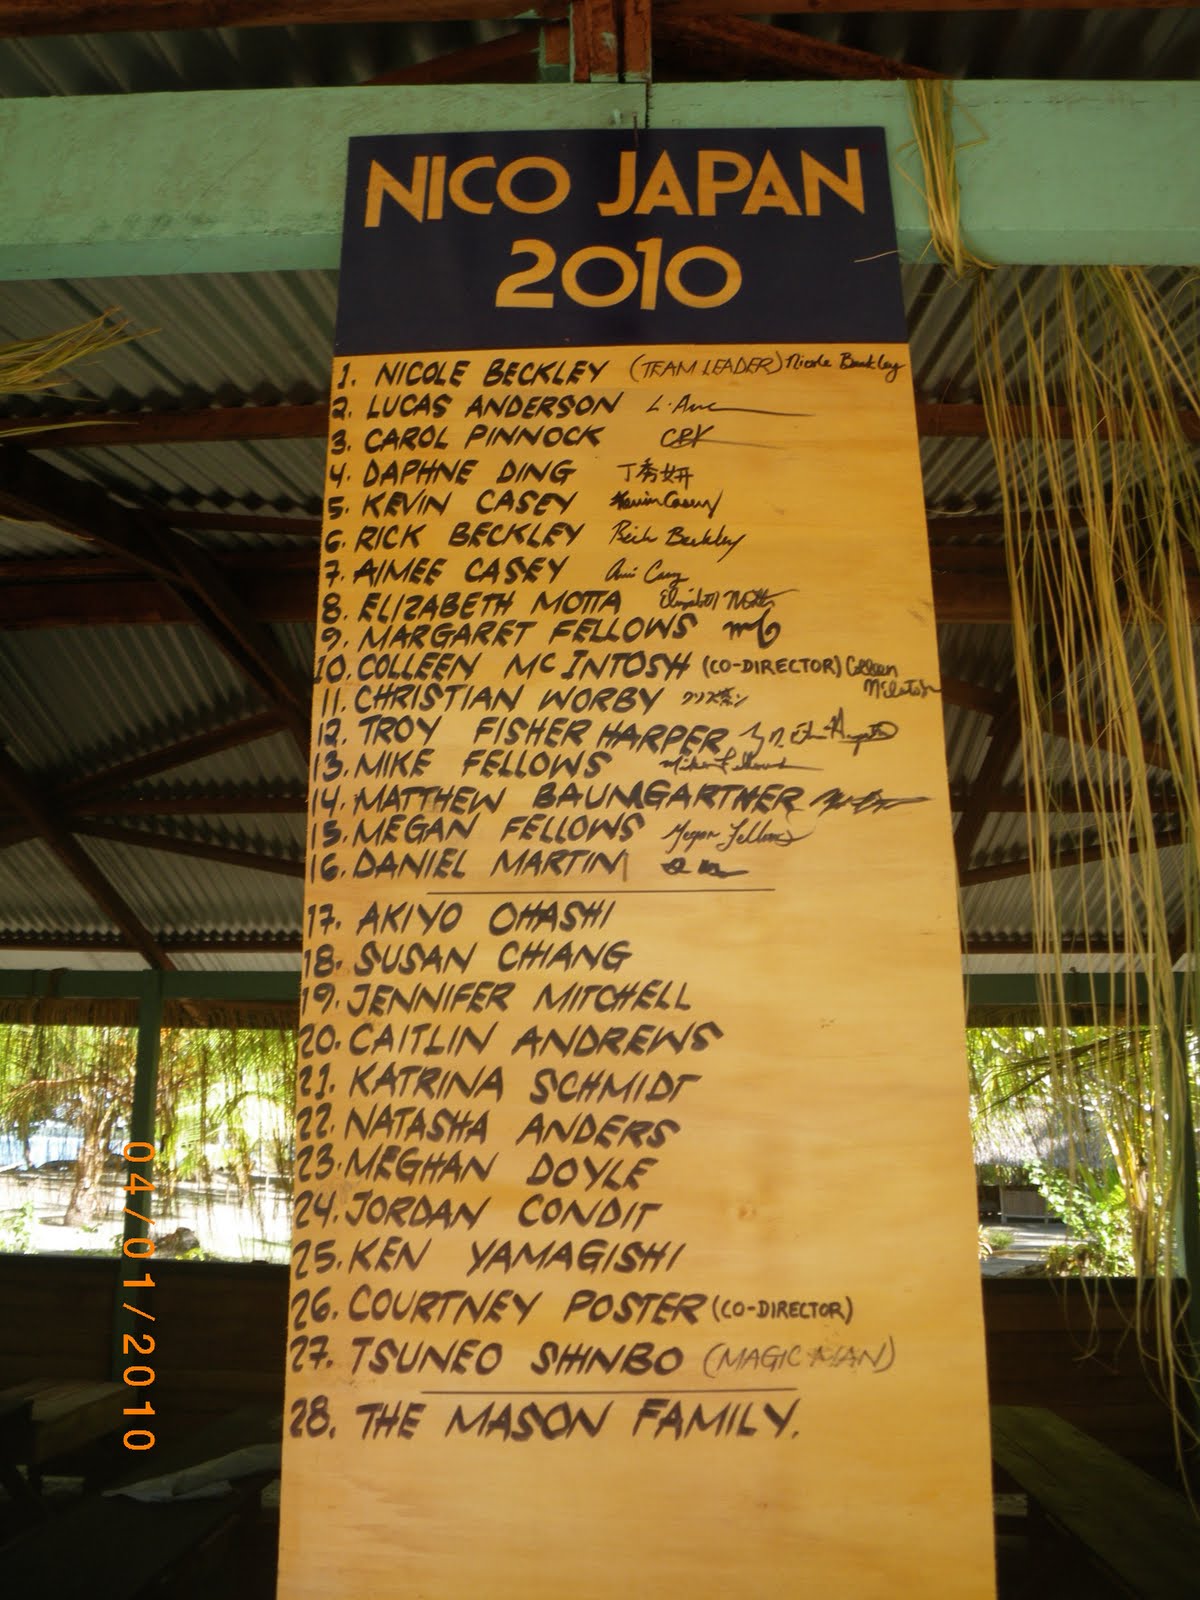 NICO JAPAN
2010
1. NICOLE BECKLEY (TEAM LEADER) Nicole Beckley
2. LUCAS ANDERSON
3. CAROL PINNOCK
4. DAPHNE DING 丁秀妍
5. KEVIN CASEY Kevin Casey
6. RICK BECKLEY Rick Beckley
7. AIMEE CASEY
8. ELIZABETH MOTTA
9. MARGARET FELLOWS
10. COLLEEN MCINTOSH (CO-DIRECTOR) Colleen
McIntosh
11. CHRISTIAN WORBY
12. TROY FISHER HARPER
13. MIKE FELLOWS Mike Fellows
14. MATTHEW BAUMGARTNER
15. MEGAN FELLOWS Megan Fellows
16. DANIEL MARTIN
17. AKIYO OHASHI
18. SUSAN CHIANG
19. JENNIFER MITCHELL
20. CAITLIN ANDREWS
21. KATRINA SCHMIDT
22. NATASHA ANDERS
23. MEGHAN DOYLE
24. JORDAN CONDIT
25. KEN YAMAGISHI
26. COURTNEY POSTER (CO-DIRECTOR)
27. TSUNEO SHINBO (MAGIC MAN)
28. THE MASON FAMILY.
04/01/2010